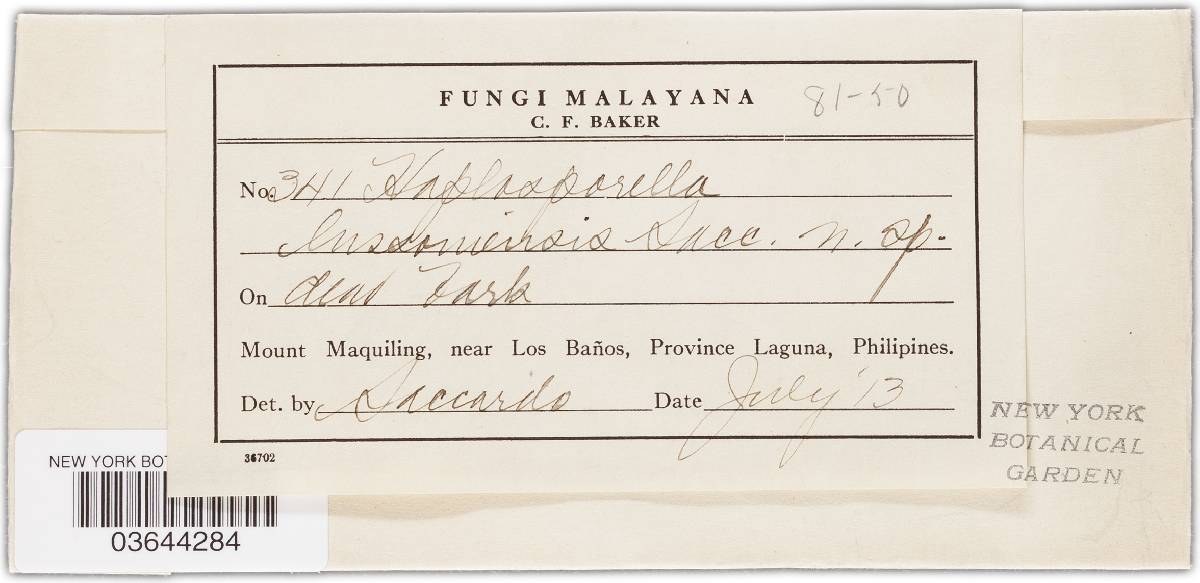 FUNGI MALAYANA 81-50
C. F. BAKER
No. 341 Haplosporella
luzzoniensis Sacc. n. sp.
On dead bark
Mount Maquiling, near Los Baños, Province Laguna, Philipines.
Det. by Saccardo Date July '13
36702
NEW YORK
BOTANICAL
GARDEN
NEW YORK BOT
03644284